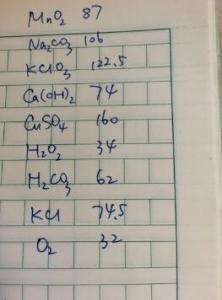 MnO₂ 87
Na₂CO₃ 106
KClO₃ 122.5
Ca(OH)₂ 74
CuSO₄ 160
H₂O₂ 34
H₂CO₃ 62
KCl 74.5
O₂ 32